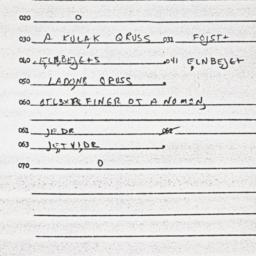 020 0
030 A KULAK QRUSS 031 FOJST+
040 ELNBEJG+S 041 ELNBEJG+
050 LADYNR QRUSS
060 FINGR OT A NOMEN,
061 JEDR 062
063 JETVJDR
070 0